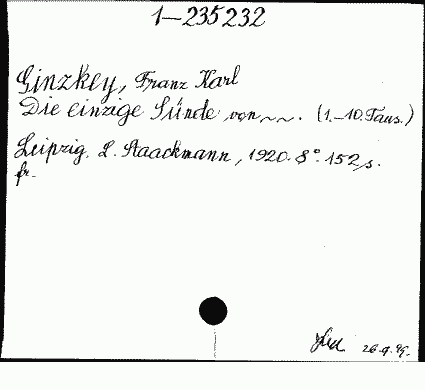 1-235232
Ginzkey, Franz Karl
Die einzige Sünde von ~ ~. (1.-10. Taus.)
Leipzig. L. Staackmann, 1920. 8° 152 s.
fr.
26.9.